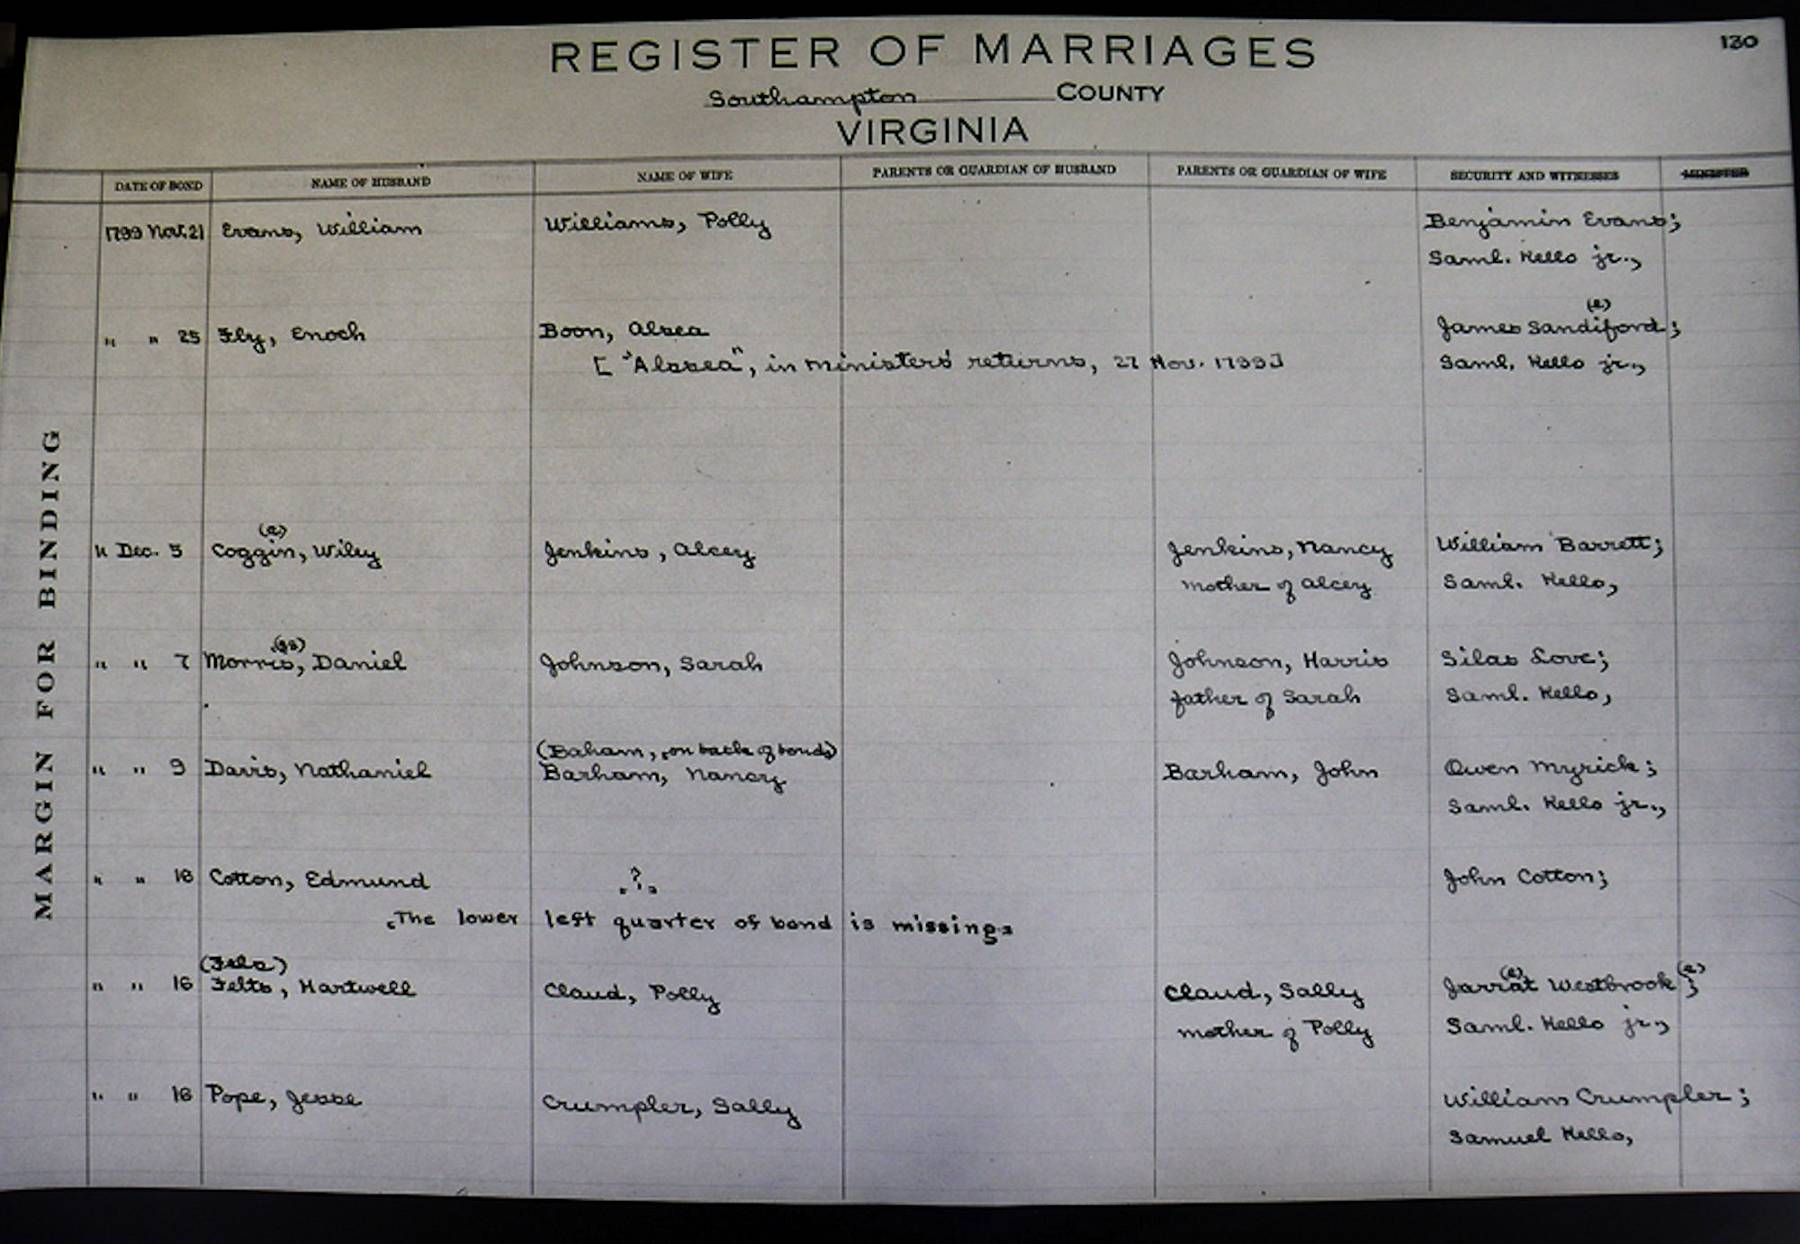 REGISTER OF MARRIAGES
130
Southampton COUNTY
VIRGINIA
DATE OF BOND NAME OF HUSBAND NAME OF WIFE PARENTS OR GUARDIAN OF HUSBAND PARENTS OR GUARDIAN OF WIFE SECURITY AND WITNESSES MINISTER
MARGIN FOR BINDING
1799 Nov. 21 Evans, William Williams, Polly Benjamin Evans;
Saml. Kello jr.,
(e)
" " 25 Fly, Enoch Boon, Alsea James Sandiford;
["Alasea", in ministers' returns, 27 Nov. 1799] Saml. Kello jr.,
(e)
" Dec. 5 Coggin, Wiley Jenkins, Alcey Jenkins, Nancy William Barrett;
mother of Alcey Saml. Kello,
(ss)
" " 7 Morris, Daniel Johnson, Sarah Johnson, Harris Silas Love;
father of Sarah Saml. Kello,
(Baham, on back of bond)
" " 9 Davis, Nathaniel Barham, Nancy Barham, John Owen Myrick;
Saml. Kello jr.,
" " 16 Cotton, Edmund ? John Cotton;
The lower left quarter of bond is missing
(Fels) (e) (e)
" " 16 Felts, Hartwell Claud, Polly Claud, Sally Jarrat Westbrook;
mother of Polly Saml. Kello jr.,
" " 16 Pope, Jesse Crumpler, Sally William Crumpler;
Samuel Kello,